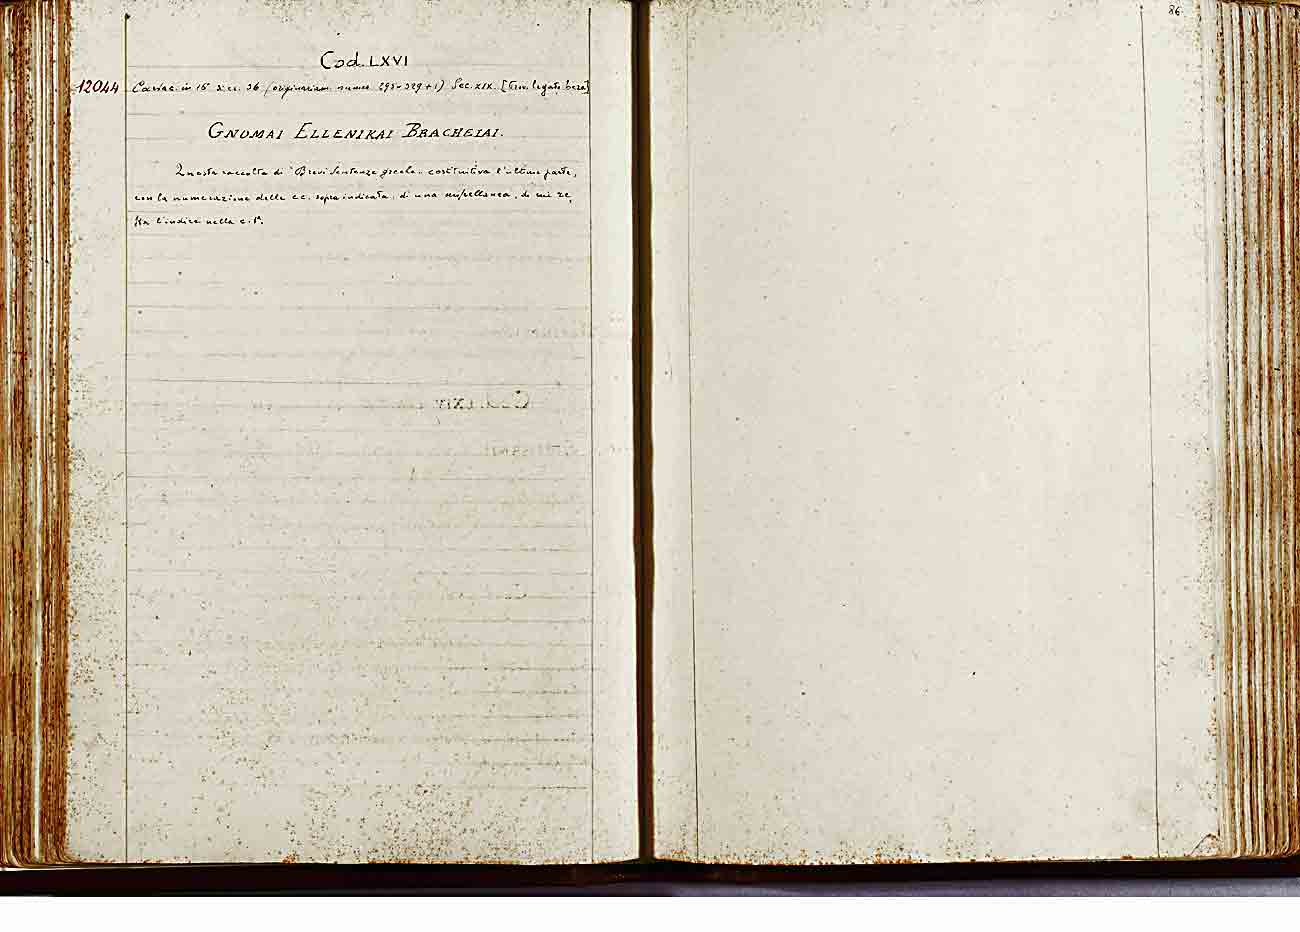 86
Cod. LXVI
12044 Cartac. in 15 x cc. 36 (originariam. numer. 293-329+1) Sec. XIX.
GNOMAI ELLENIKAI BRACHEIAI.
Questa raccolta di "Brevi Sentenze greche" costituiva l'ultima parte,
con la numerazione delle cc. sopra indicata, di una miscellanea, di cui re,
sta l'indice nella c. 1ª.